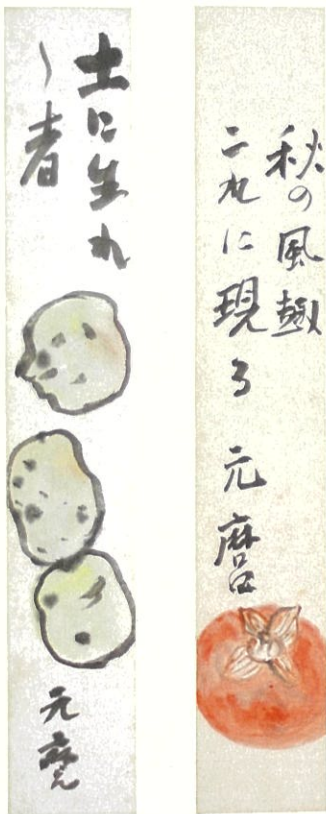 秋の風趣
二九に現る 元麿
土に生れ
し者
元麿